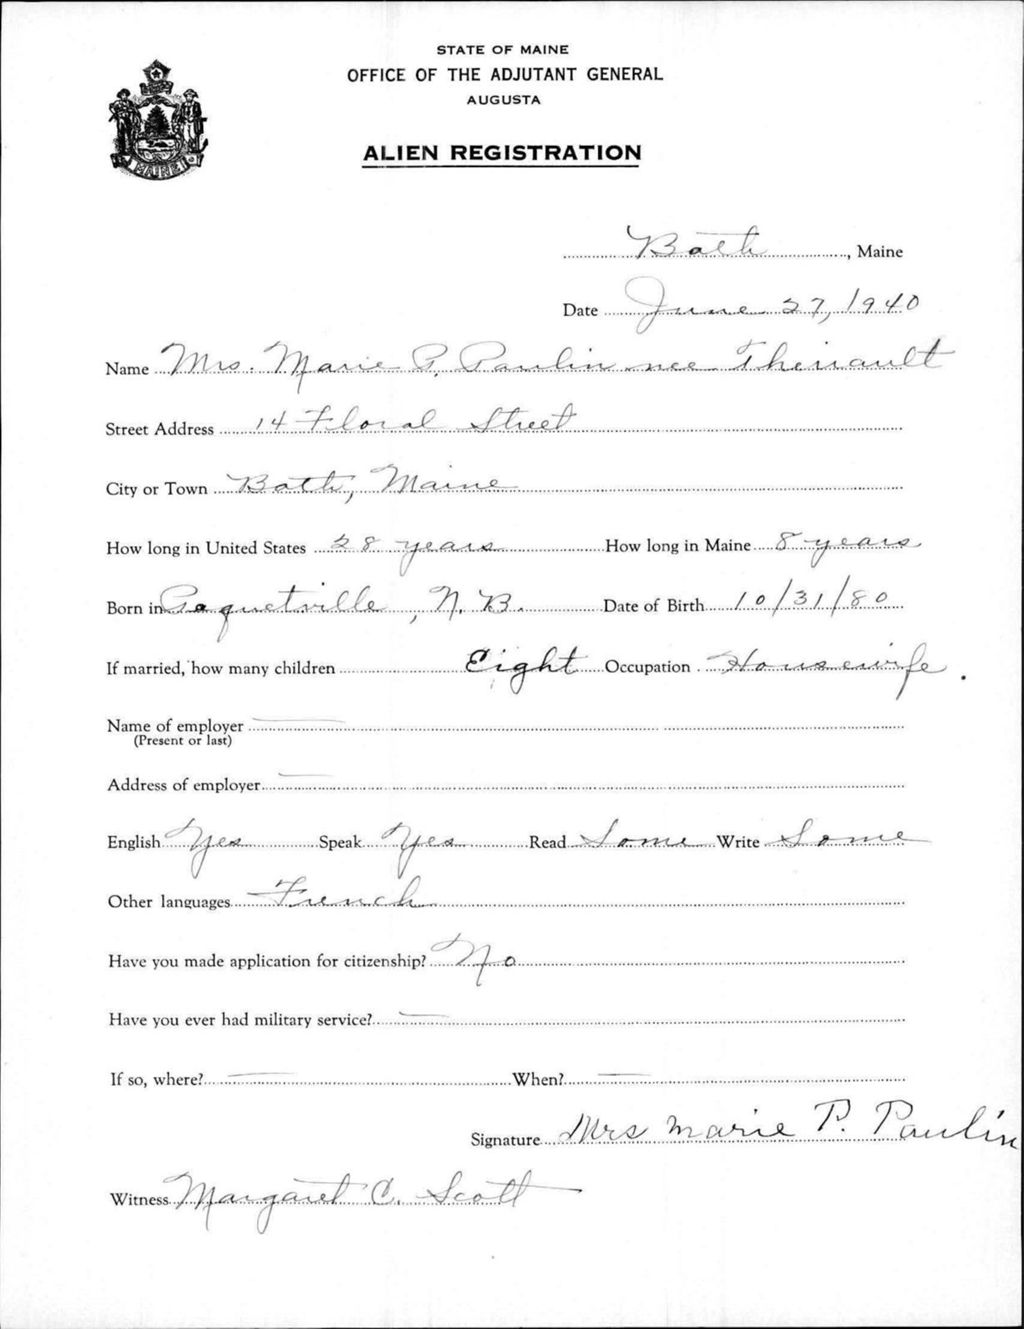 STATE OF MAINE
OFFICE OF THE ADJUTANT GENERAL
AUGUSTA
ALIEN REGISTRATION
MAINE
Bath, Maine
Date June 27, 1940
Name Mrs. Marie P. Paulin nee Theriault
Street Address 14 Floral Street
City or Town Bath, Maine
How long in United States 28 years How long in Maine 8 years
Born in Paquetville, N. B. Date of Birth 10/31/80
If married, how many children Eight Occupation Housewife.
Name of employer
(Present or last)
Address of employer
English Yes Speak Yes Read Some Write Some
Other languages French
Have you made application for citizenship? No
Have you ever had military service?
If so, where? When?
Signature Mrs Marie P. Paulin
Witness Margaret C. Scott